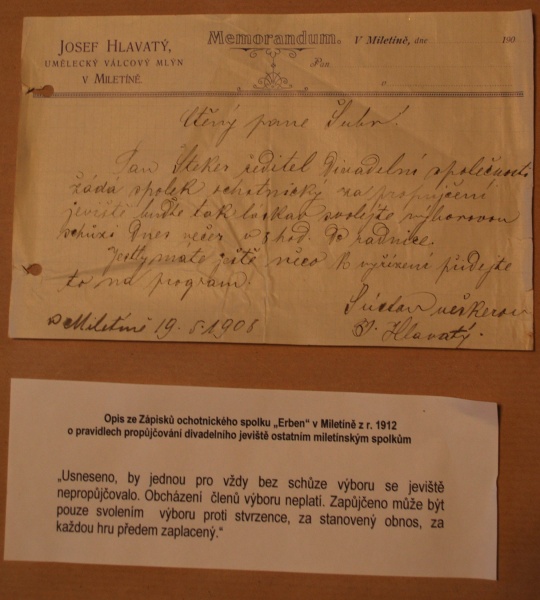 JOSEF HLAVATÝ,
UMĚLECKÝ VÁLCOVÝ MLÝN
V MILETÍNĚ.
Memorandum.
V Miletíně, dne 190
Pan
Ctěný pane Šubr!
Pan Steker ředitel Divadelní společnosti
žádá spolek ochotnický za propůjčení
jeviště buďte tak láskav svolejte výborovou
schůzi Dnes večer v hod. Do radnice.
Jestly máte ještě něco k vyřízení přidejte
to na program.
S úctou veškerou
J. Hlavatý.
v Miletíně 19.5.1908
Opis ze Zápisků ochotnického spolku „Erben“ v Miletíně z r. 1912
o pravidlech propůjčování divadelního jeviště ostatním miletínským spolkům
„Usneseno, by jednou pro vždy bez schůze výboru se jeviště
nepropůjčovalo. Obcházení členů výboru neplatí. Zapůjčeno může být
pouze svolením výboru proti stvrzence, za stanovený obnos, za
každou hru předem zaplacený.“